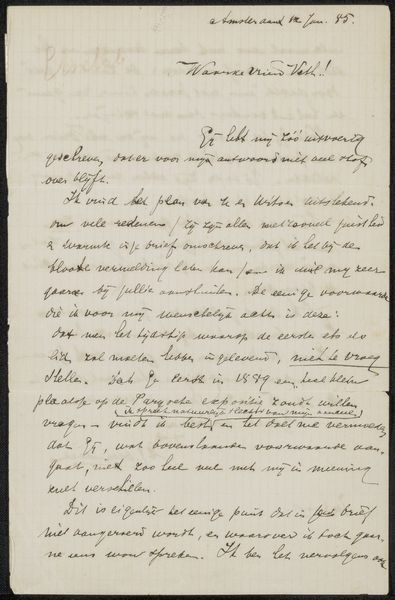 Amsterdam Jan. 85.
Waarde vriend Veth!
Gij hebt mij zóó uitvoerig
geschreven, dat er voor mijn antwoord niet veel stof
over blijft.
Ik vind het plan van Uitstekend.
om vele redenen / zij zijn alle met zooveel juistheid
& warmte in je brief omschreven, dat ik het bij de
bloote vermelding laten kan / en ik wil mij zeer
gaarne bij jullie aansluiten. De eenige voorwaarde
die ik voor mij wenschelijk achtte is deze:
dat men het tijdstip waarop de eerste ets
zal moeten hebben ingeleverd, niet te vroeg
stelle. Dat Ge eerst in 1889 een heel klein
plaatsje op de Parijsche expositie zoudt willen
(ik spreek natuurlijk slechts van mijn)
vragen vindt ik best en het doet me vermoeden
dat Gij, wat bovenstaande voorwaarde aan-
gaat, niet zoo heel veel met mij in meening
zult verschillen.
Dit is eigenlijk het eenige punt dat in brief
niet aangeroerd wordt, en waarover ik toch gaar-
ne eens wou spreken. Ik ben het vervolgens